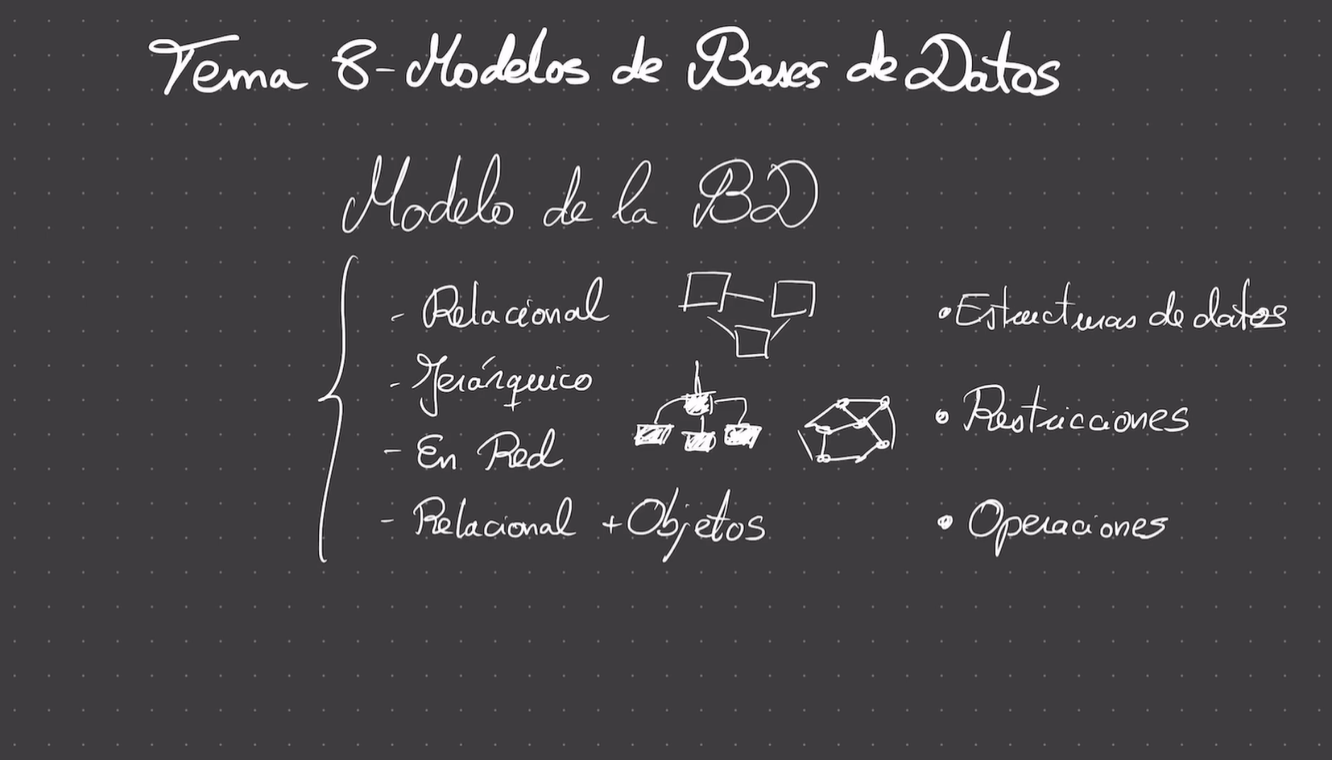 Tema 8-Modelos de Bases de Datos
Modelo de la BD
- Relacional
- Jerárquico
- En Red
- Relacional + Objetos
• Estructuras de datos
• Restricciones
• Operaciones